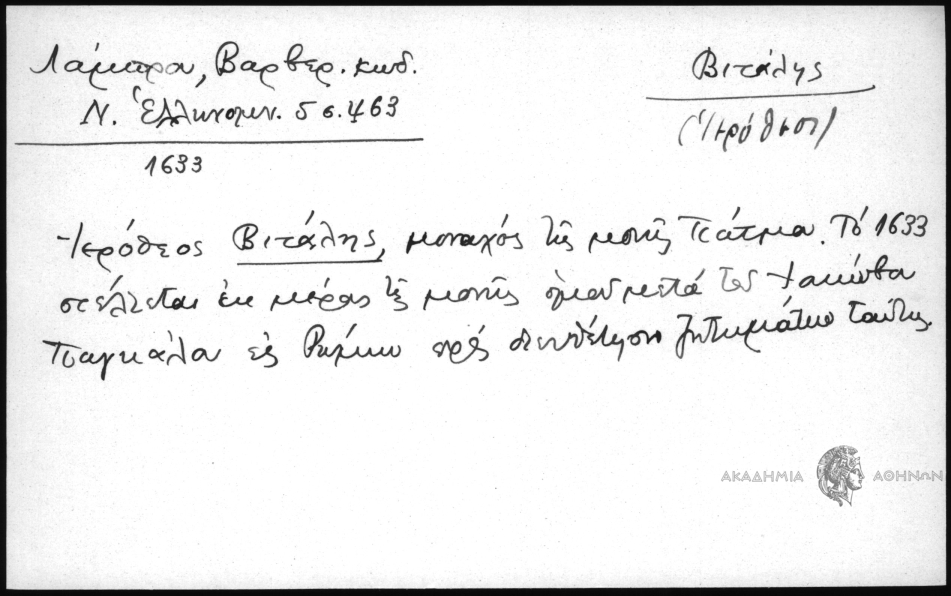 Λάμπρου, Βαρβερ. κωδ.
Ν. Ἑλληνομν. 5 σ. 463
1633
Βιτάλης
(Ἱερόθεος)
Ἱερόθεος Βιτάλης, μοναχός τῆς μονῆς Πάτμου. Τό 1633
στέλλεται ἐκ μέρους τῆς μονῆς ὁμοῦ μετά τοῦ Ἰακώβου
Παγκάλου εἰς Ρώμην πρός διευθέτησιν ζητημάτων ταύτης.
ΑΚΑΔΗΜΙΑ ΑΘΗΝΩΝ